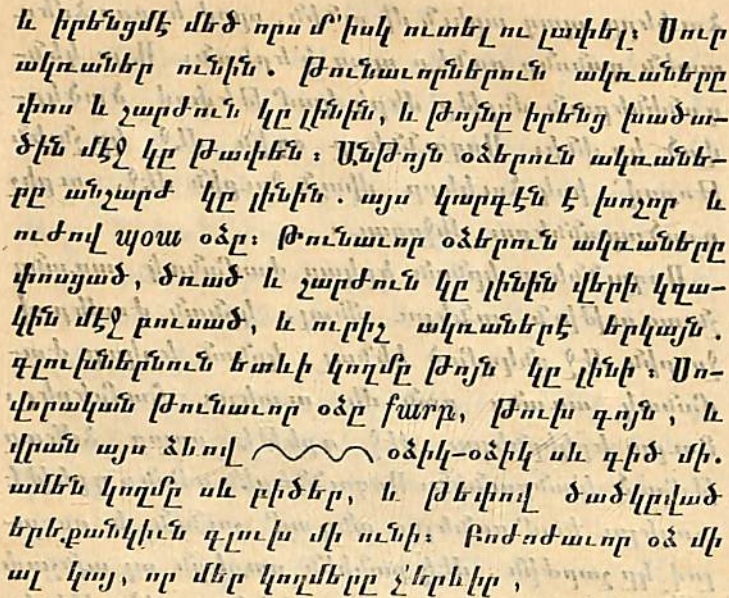 և իրենցմէ մեծ որս մ՚իսկ ուտել ու լափել։ Սուր
ակռաներ ունին. Թունաւորներուն ակռաները
փոս և շարժուն կը լինին, և Թոյնը իրենց խածա-
ծին մէջ կը Թափեն։ ԱնԹոյն օձերուն ակռանե-
րը անշարժ կը լինին. այս կարգէն է խոշոր և
ուժով պօա օձը։ Թունաւոր օձերուն ակռաները
փոսցած, ծռած և շարժուն կը լինին վերի կղա-
կին մէջ բուսած, և ուրիշ ակռաներէ երկայն.
գլուխներնուն ետևի կողմը Թոյն կը լինի։ Սո-
վորական Թունաւոր օձը խարը, Թուխ գոյն, և
վրան այս ձևով օձիկ-օձիկ սև գիծ մի.
ամեն կողմը սև բիծեր, և Թեփով ծածկըված
երեքանկիւն գլուխ մի ունի։ Բոժոժաւոր օձ մի
ալ կայ, որ մեր կողմերը չ՚երևիր,